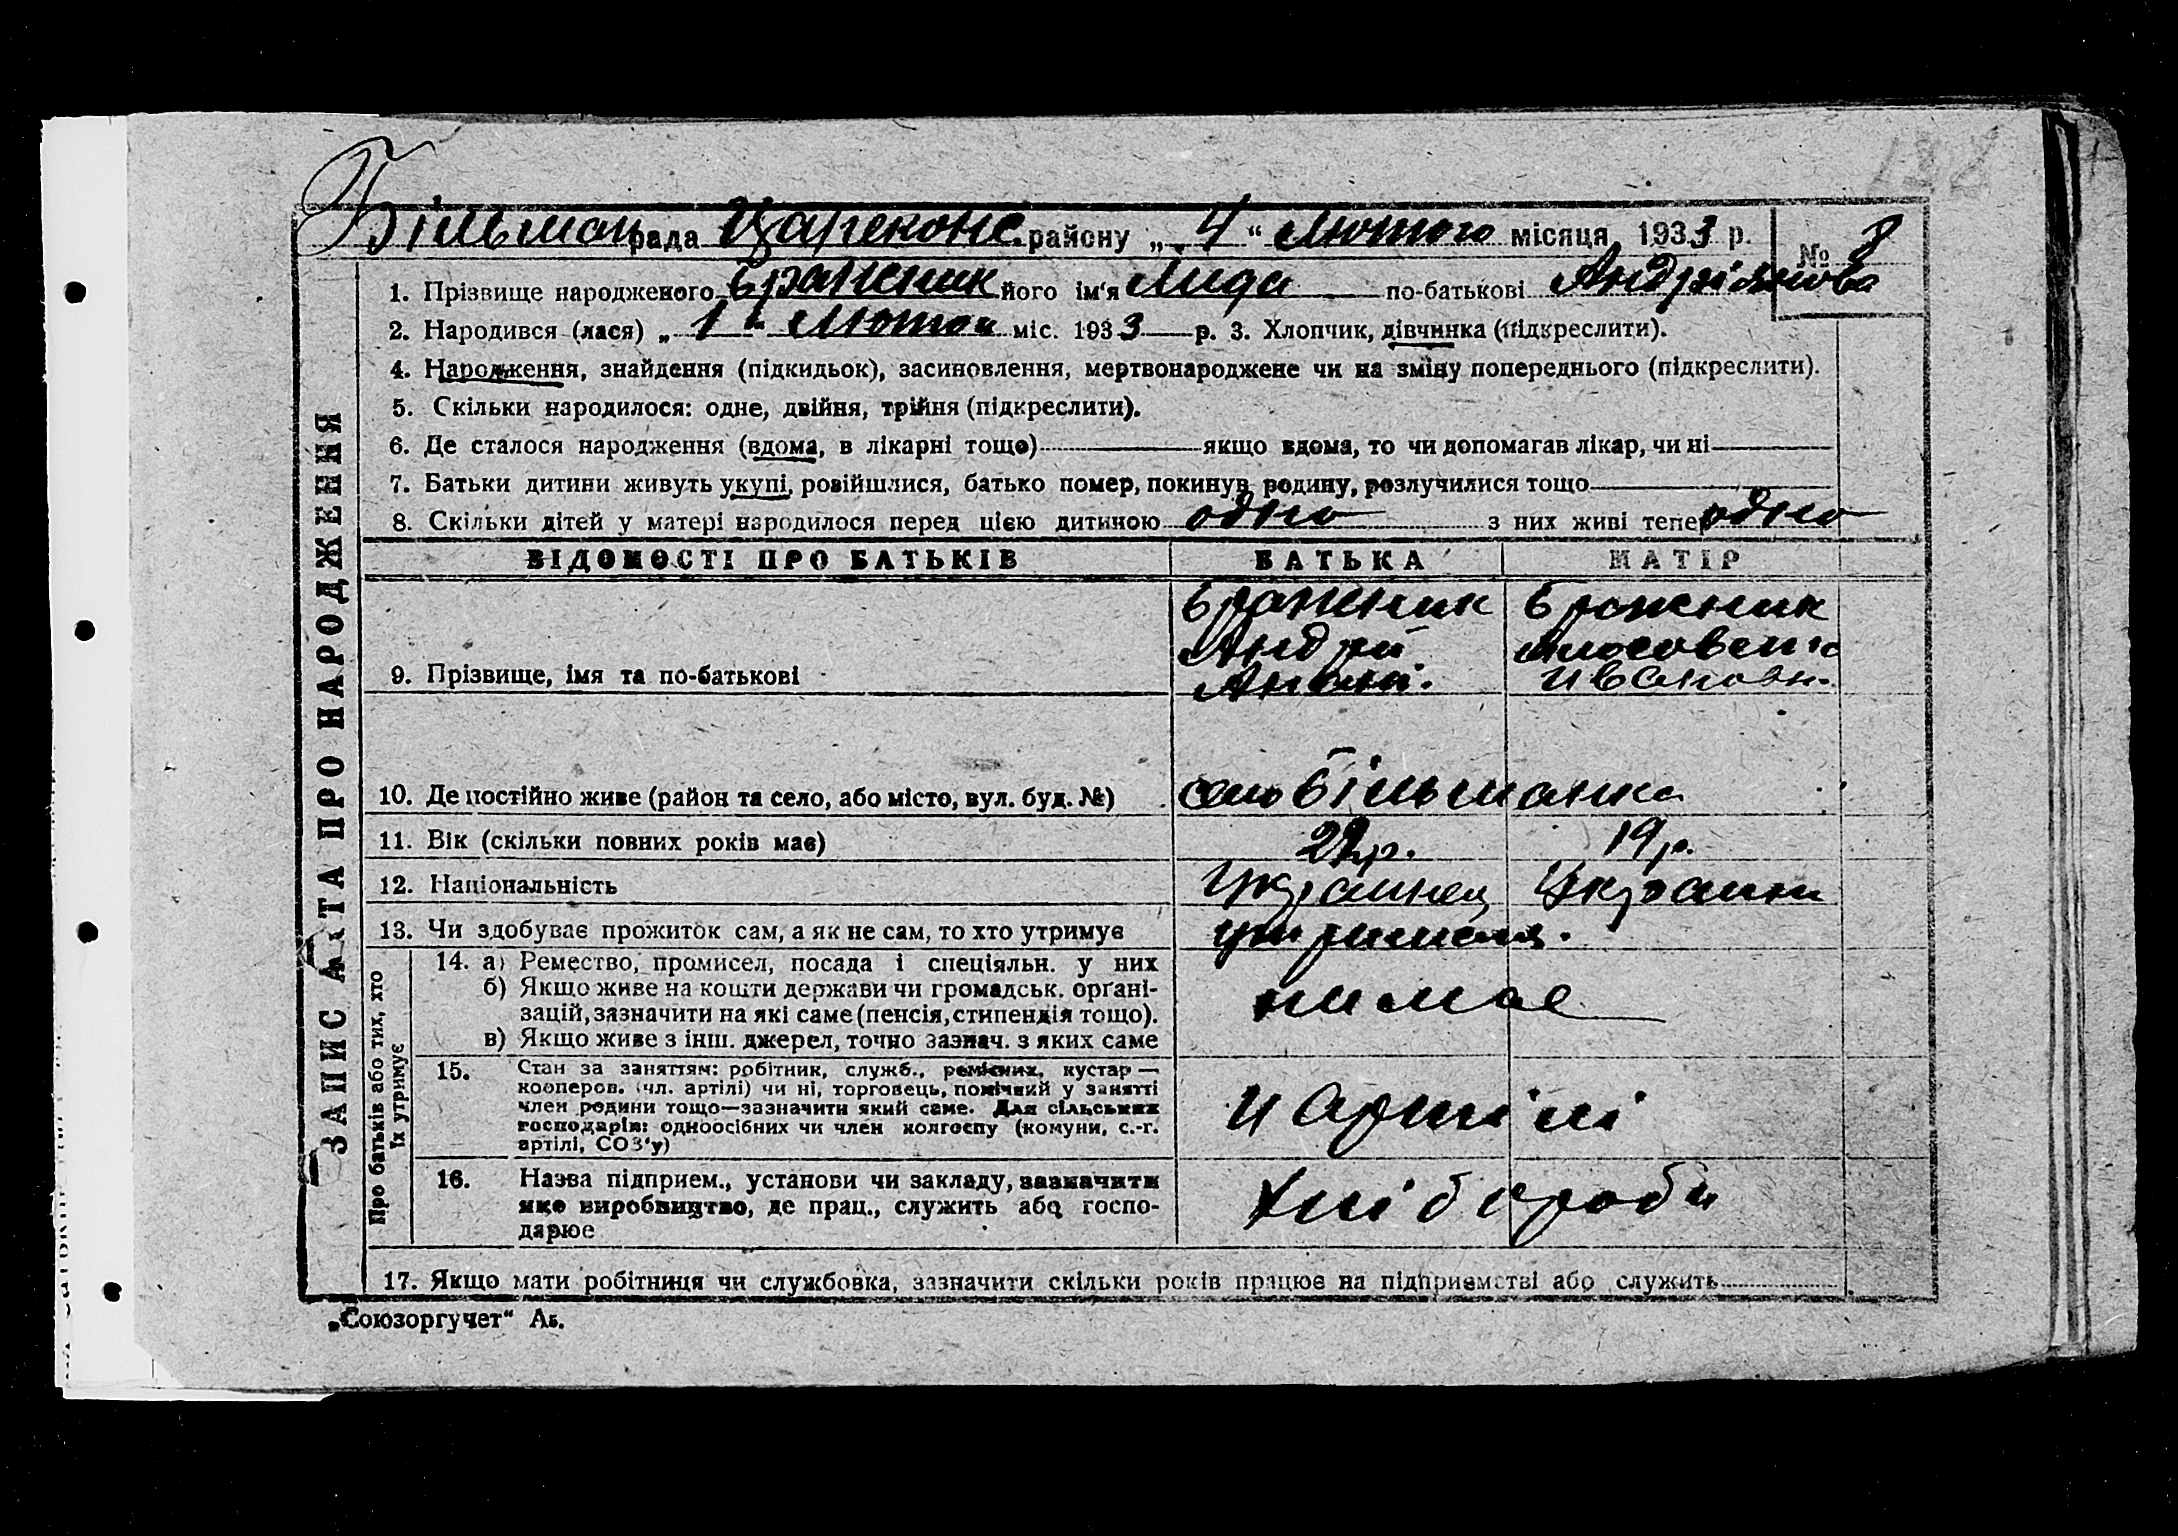 Більман рада Цареконс. району „ 4 “ Лютого місяця 1933 р.
№ 8
1. Прізвище народженого Бражник його ім'я Лида по-батькові
2. Народився (лася) „ 1 “ Лютоя міс. 1933 р. 3. Хлопчик, дівчинка (підкреслити).
4. Народження, знайдення (підкидьок), засиновлення, мертвонароджене чи на зміну попереднього (підкреслити).
5. Скільки народилося: одне, двійня, трійня (підкреслити).
6. Де сталося народження (вдома, в лікарні тощо) якщо вдома, то чи допомагав лікар, чи ні
7. Батьки дитини живуть укупі, розійшлися, батько помер, покинув родину, розлучилися тощо
8. Скільки дітей у матері народилося перед цією дитиною одно з них живі тепер одно
ВІДОМОСТІ ПРО БАТЬКІВ БАТЬКА МАТІР
9. Прізвище, імя та по-батькові
Бражник Бражник
Андрій
Ивановн.
10. Де постійно живе (район та село, або місто, вул. буд. №) село Більманка
11. Вік (скільки повних років має) 22р. 19р.
12. Національність Украинец Украин
13. Чи здобуває прожиток сам, а як не сам, то хто утримує
14. а) Ремество, промисел, посада і спеціяльн. у них
б) Якщо живе на кошти держави чи громадськ. орґані-
зацій, зазначити на які саме (пенсія, стипендія тощо).
в) Якщо живе з інш. джерел, точно зазнач. з яких саме
нимае
15. Стан за заняттям: робітник, служб., ремісник, кустар —
кооперов. (чл. артілі) чи ні, торговець, помічний у занятті
член родини тощо—зазначити який саме. Для сільських
господарів: одноосібних чи член колгоспу (комуни, с.-г.
артілі, СОЗ'у)
и артілі
16. Назва підприєм., установи чи закладу, зазначити
яке виробництво, де прац., служить або госпо-
дарює
хлібороби
17. Якщо мати робітниця чи службовка, зазначити скільки років працює на підприємстві або служить
ЗАПИС АКТА ПРО НАРОДЖЕННЯ
Про батьків або тих, хто
їх утримує
„Союзоргучет“